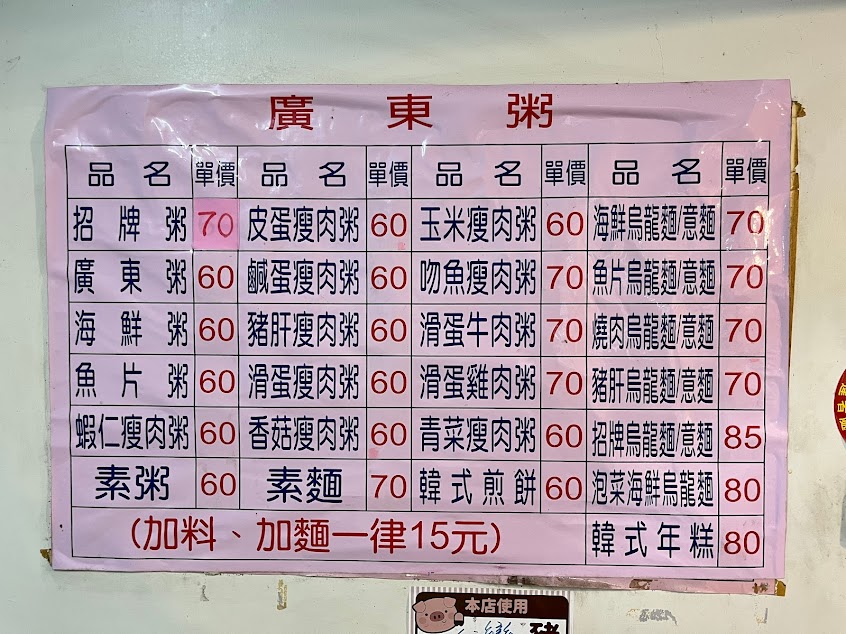 廣東粥
品名 單價 品名 單價 品名 單價 品名 單價
招牌粥 70 皮蛋瘦肉粥 60 玉米瘦肉粥 60 海鮮烏龍麵/意麵 70
廣東粥 60 鹹蛋瘦肉粥 60 吻魚瘦肉粥 70 魚片烏龍麵/意麵 70
海鮮粥 60 豬肝瘦肉粥 60 滑蛋牛肉粥 70 燒肉烏龍麵/意麵 70
魚片粥 60 滑蛋瘦肉粥 60 滑蛋雞肉粥 70 豬肝烏龍麵/意麵 70
蝦仁瘦肉粥 60 香菇瘦肉粥 60 青菜瘦肉粥 60 招牌烏龍麵/意麵 85
素粥 60 素麵 70 韓式煎餅 60 泡菜海鮮烏龍麵 80
(加料、加麵一律15元) 韓式年糕 80
本店使用
豬